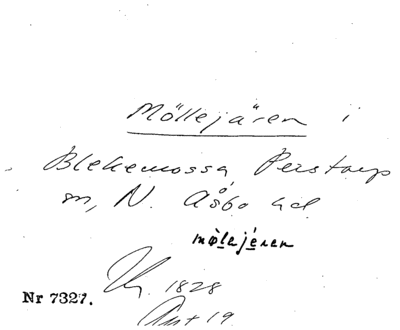 Möllejären i
Blekemossa Perstorp
sn, N. Åsbo hd
mølejeren
1828
Nr 7327.
Ant 19